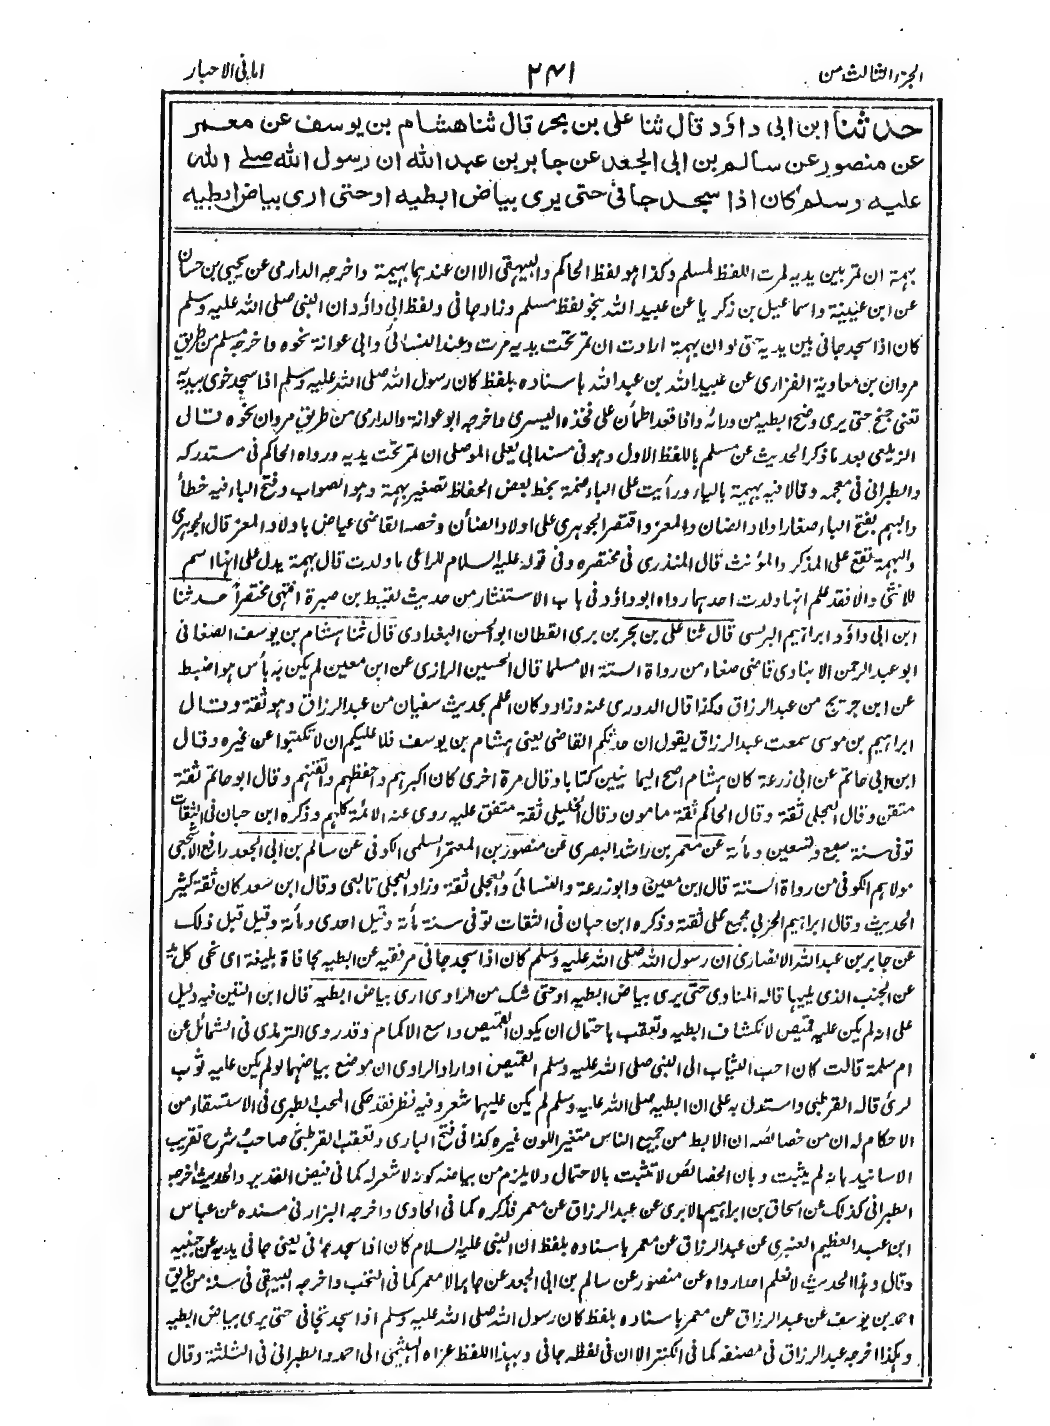 الجزء الثالث من
٢٤١
امانی الاحبار
حدثنا ابن ابی داؤد قال ثنا علی بن بحر قال ثنا هشام بن یوسف عن معمر
عن منصور عن سالم بن ابی الجعد عن جابر بن عبد الله ان رسول الله صلے الله
علیه وسلم کان اذا سجد جافی حتی یری بیاض ابطیه او حتی اری بیاض ابطیه
بہمة ان تمر بین یدیہ لمرت اللفظ لمسلم وکذا ہو لفظ الحاکم والبیہقی الا ان عندہما بہیمة واخرجہ الدارمی عن یحیی بن حسان
عن ابن عیینة واسماعیل بن زکریا عن عبید اللہ بنحو لفظ مسلم وزاد جافی ولفظ ابی داؤد ان النبی صلی اللہ علیہ وسلم
کان اذا سجد جافی بین یدیہ حتی لو ان بہمة ارادت ان تمر تحت یدیہ مرت وعند النسائی وابی عوانة نحوہ واخرجہ مسلم من طریق
مروان بن معاویة الفزاری عن عبید اللہ بن عبد اللہ باسنادہ بلفظ کان رسول اللہ صلی اللہ علیہ وسلم اذا سجد خوی بیدیہ
تعنی جنح حتی یری وضح ابطیہ من ورائہ واذا قعد اطمأن علی فخذہ الیسری واخرجہ ابو عوانة والدارمی من طریق مروان نحوہ قال
الزیلعی بعد ما ذکر الحدیث عن مسلم باللفظ الاول وہو فی مسند ابی یعلی الموصلی ان تمر تحت یدیہ ورواہ الحاکم فی مستدرکہ
والطبرانی فی معجمہ وقالا فیہ بہیمة بالیاء ورأیت علی الباء ضمة بخط بعض الحفاظ تصغیر بہمة وہو الصواب وفتح الباء فیہ خطأ
والبہم بفتح الباء صغار اولاد الضان والمعز واقتصر الجوہری علی اولاد الضأن وخصہ القاضی عیاض باولاد المعز قال الجوہری
والبہمة تقع علی المذکر والمؤنث قال المنذری فی مختصرہ وفی قولہ علیہ السلام للراعی ما ولدت قال بہمة یدل علی انہا اسم
للانثی والا فقد علم انہا ولدت احدہما رواہ ابو داؤد فی باب الاستنثار من حدیث لقیط بن صبرة انتہی مختصراً حدثنا
ابن ابی داؤد ابراہیم البرلسی قال ثنا علی بن بحر بن بری القطان ابو الحسن البغدادی قال ثنا ہشام بن یوسف الصنعانی
ابو عبد الرحمن الابناوی قاضی صنعاء من رواة الستة الا مسلما قال الحسین الرازی عن ابن معین لم یکن بہ بأس ہو اضبط
عن ابن جریج من عبد الرزاق وکذا قال الدوری عنہ وزاد وکان اعلم بحدیث سفیان من عبد الرزاق وہو ثقة وقال
ابراہیم بن موسی سمعت عبد الرزاق یقول ان حدثکم القاضی یعنی ہشام بن یوسف فلا علیکم ان لا تکتبوا عن غیرہ وقال
ابن ابی حاتم عن ابی زرعة کان ہشام اصح الیمانیین کتابا وقال مرة اخری کان اکبرہم واحفظہم واتقنہم وقال ابو حاتم ثقة
متقن وقال العجلی ثقة وقال الحاکم ثقة مامون وقال الخلیلی ثقة متفق علیہ روی عنہ الائمة کلہم وذکرہ ابن حبان فی الثقات
توفی سنة سبع وتسعین ومأة عن معمر بن راشد البصری عن منصور بن المعتمر السلمی الکوفی عن سالم بن ابی الجعد رافع الاشجعی
مولاہم الکوفی من رواة الستة قال ابن معین وابو زرعة والنسائی والعجلی ثقة وزاد العجلی تابعی وقال ابن سعد کان ثقة کثیر
الحدیث وقال ابراہیم الحربی مجمع علی ثقتہ وذکرہ ابن حبان فی الثقات توفی سنة مأة وقیل احدی ومأة وقیل قبل ذلک
عن جابر بن عبد اللہ الانصاری ان رسول اللہ صلی اللہ علیہ وسلم کان اذا سجد جافی مرفقیہ عن ابطیہ مجافاة بلیغة ای نحی کل ید
عن الجنب الذی یلیہا قالہ المناوی حتی یری بیاض ابطیہ او حتی شک من الراوی اری بیاض ابطیہ قال ابن التین فیہ دلیل
علی انہ لم یکن علیہ قمیص لانکشاف ابطیہ وتعقب باحتمال ان یکون القمیص واسع الاکمام وقد روی الترمذی فی الشمائل عن
ام سلمة قالت کان احب الثیاب الی النبی صلی اللہ علیہ وسلم القمیص او اراد الراوی ان موضع بیاضہما لو لم یکن علیہ ثوب
لرئ قالہ القرطبی واستدل بہ علی ان ابطیہ صلی اللہ علیہ وسلم لم یکن علیہما شعر وفیہ نظر فقد حکی المحب الطبری فی الاستسقاء من
الاحکام لہ ان من خصائصہ ان الابط من جمیع الناس متغیر اللون غیرہ کذا فی فتح الباری وتعقب القرطبی صاحب شرح تقریب
الاسانید بانہ لم یثبت وبان الخصائص لا تثبت بالاحتمال ولا یلزم من بیاضہ کونہ لا شعر لہ کما فی فیض القدیر والحدیث اخرجہ
الطبرانی کذلک عن اسحاق بن ابراہیم الدبری عن عبد الرزاق عن معمر فذکرہ کما فی الحاوی واخرجہ البزار فی مسندہ عن عباس
ابن عبد العظیم العنبری عن عبد الرزاق عن معمر باسنادہ بلفظ ان النبی علیہ السلام کان اذا سجد جافی یعنی جافی یدیہ عن جنبیہ
وقال وہذا الحدیث لا نعلم احدا رواہ عن منصور عن سالم بن ابی الجعد عن جابر الا معمر کما فی النخب واخرجہ البیہقی فی سننہ من طریق
احمد بن یوسف عن عبد الرزاق عن معمر باسنادہ بلفظ کان رسول اللہ صلی اللہ علیہ وسلم اذا سجد تجافی حتی یری بیاض ابطیہ
وہکذا اخرجہ عبد الرزاق فی مصنفہ کما فی الکنز الا ان فی لفظہ جافی وبہذا اللفظ عزاہ الہیثمی الی احمد والطبرانی فی الثلثة وقال